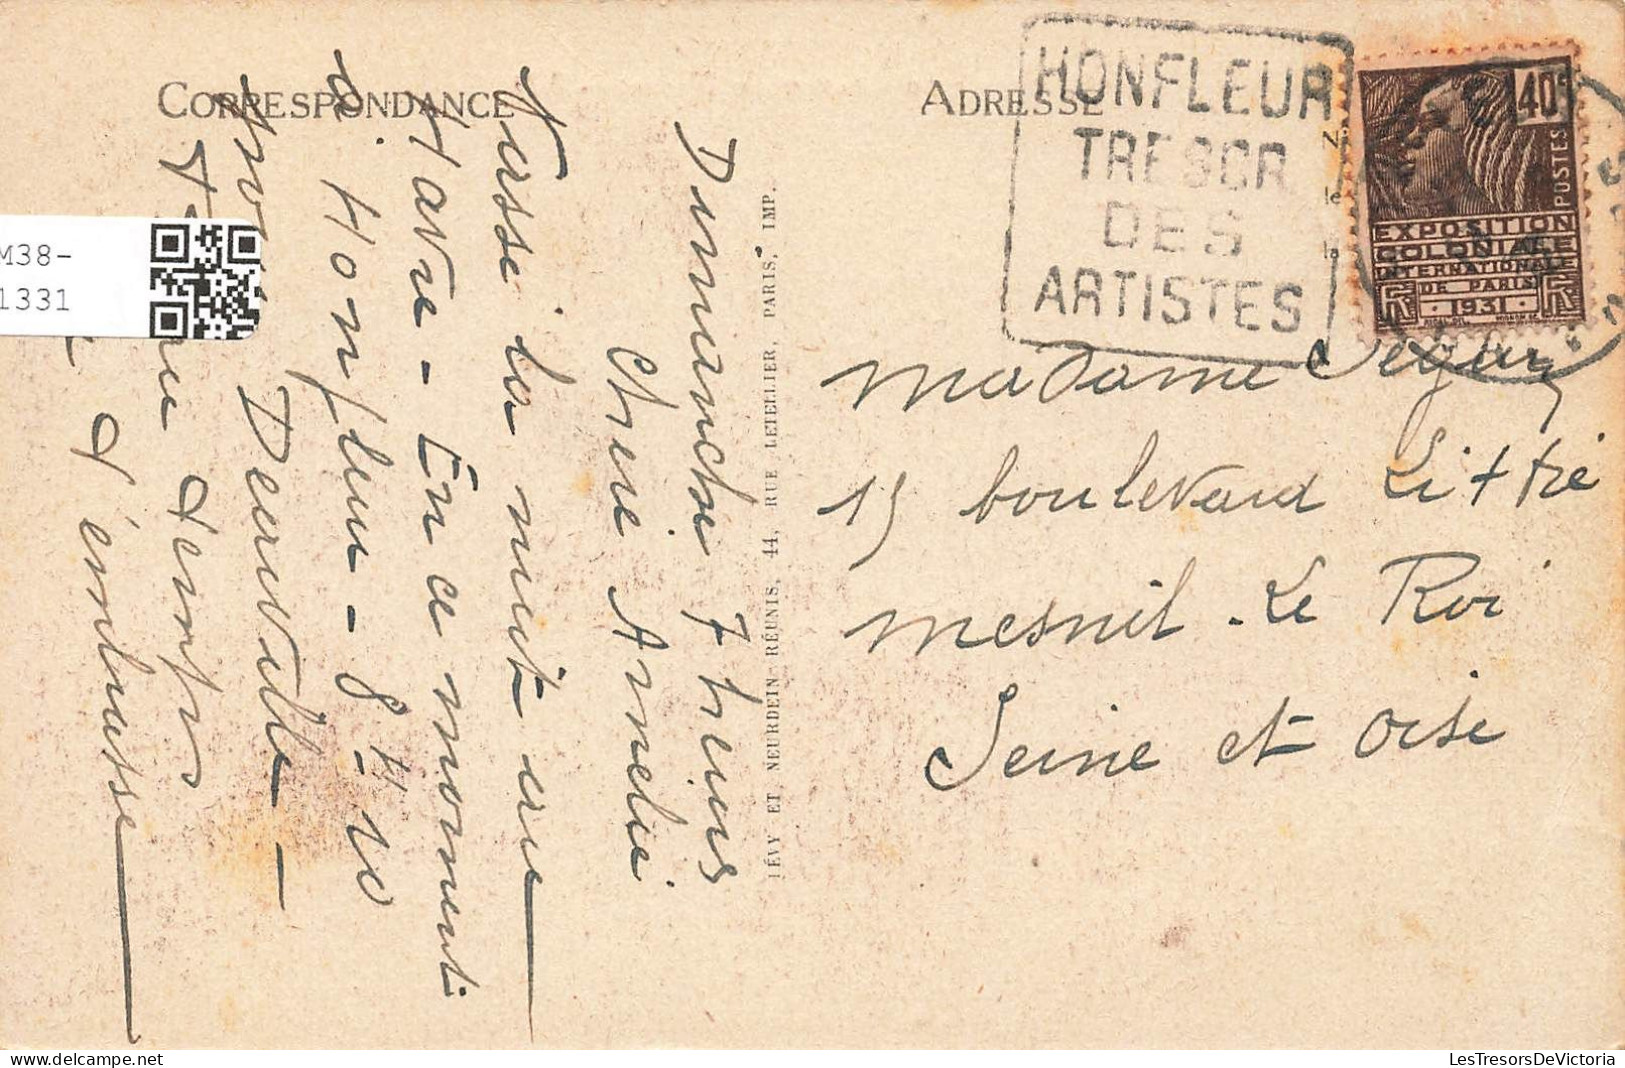 CORRESPONDANCE
ADRESSE
HONFLEUR
TRESOR
DES
ARTISTES
40c
POSTES
EXPOSITION
COLONIALE
INTERNATIONALE
DE PARIS
1931
M38-
1331
Dimanche 7 heures
Chère Amélie
Passé la nuit au
Havre - En ce moment
à Honfleur - 8 H 10
Deauville -
temps
t'embrasse
LÉVY ET NEURDEIN RÉUNIS, 44, RUE LETELLIER, PARIS, IMP.
Madame
15 boulevard Littré
Mesnil-Le Roi
Seine et Oise
LesTresorsDeVictoria